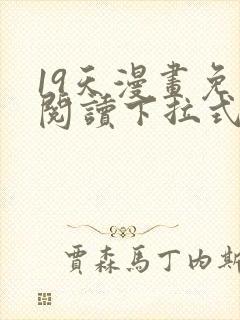 19天漫畫免
閱讀下拉式
賈森馬丁內斯